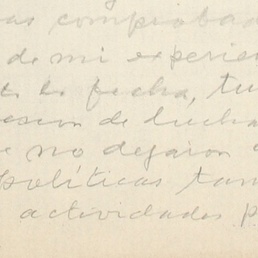 as comprobad
de mi experien
la fecha, tu
de lucha
e no dejaron
políticas tam
actividades p